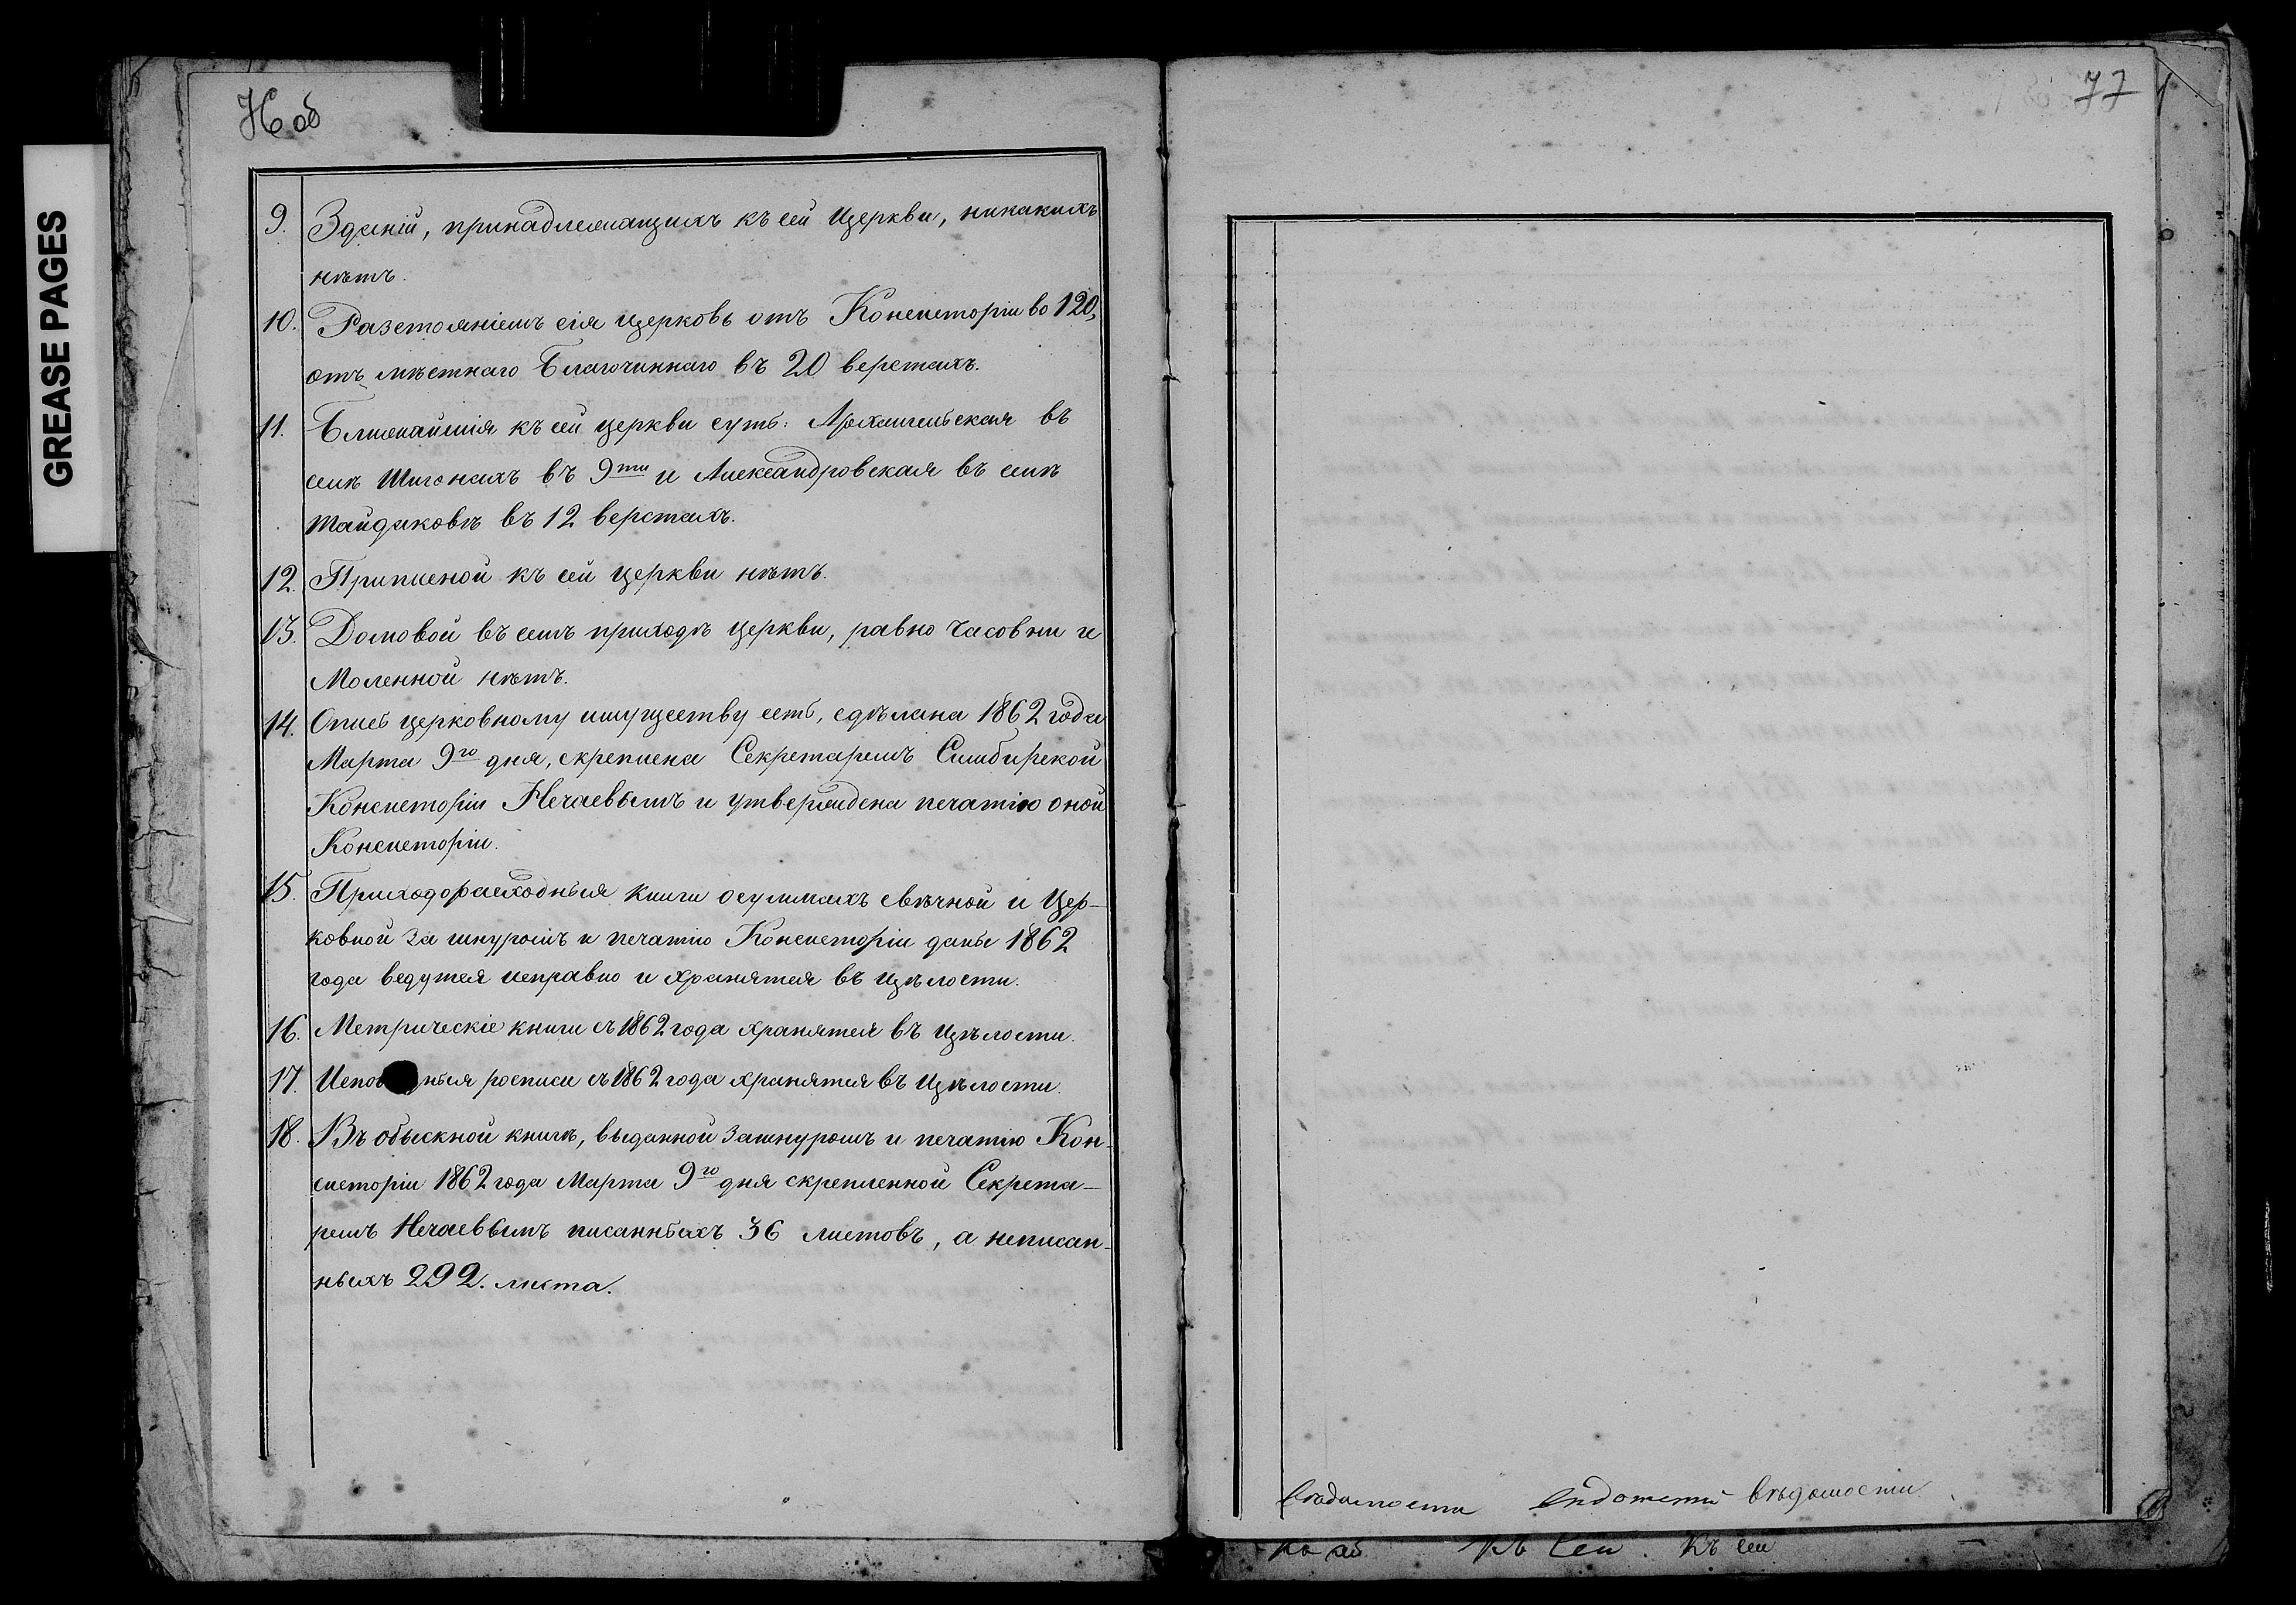 GREASE PAGES
об
77
9. Зданій, принадлежащихъ къ сей Церкви, никакихъ
нѣтъ.
10. Разстояніемъ сія церковь отъ Консисторіи во 120,
отъ мѣстнаго Благочиннаго въ 20 верстахъ.
11. Ближайшія къ сей церкви суть: Архангельская въ
селѣ Шигонахъ въ 9ти и Александровская въ селѣ
Тайдаковѣ въ 12 верстахъ.
12. Приписной къ сей церкви нѣтъ.
13. Домовой въ семъ приходѣ церкви, равно часовни и
Моленной нѣтъ.
14. Опись церковному имуществу есть, сдѣлана 1862 года
Марта 9го дня, скреплена Секретаремъ Симбирской
Консисторіи Нечаевымъ и утверждена печатію оной
Консисторіи.
15. Приходорасходныя книги о суммахъ свѣчной и Цер-
ковной за шнуромъ и печатію Консисторіи даны 1862
года ведутся исправно и хранятся въ цѣлости.
16. Метрическіе книги съ 1862 года хранятся въ цѣлости.
17. Испов ныя росписи съ 1862 года хранятся въ цѣлости.
18. Въ обыскной книгѣ, выданной за шнуромъ и печатію Кон-
систоріи 1862 года Марта 9го дня скрепленной Секрета-
ремъ Нечаевымъ писанныхъ 36 листовъ, а неписан-
ныхъ 292. листа.
вѣдомости
къ сей. къ сей